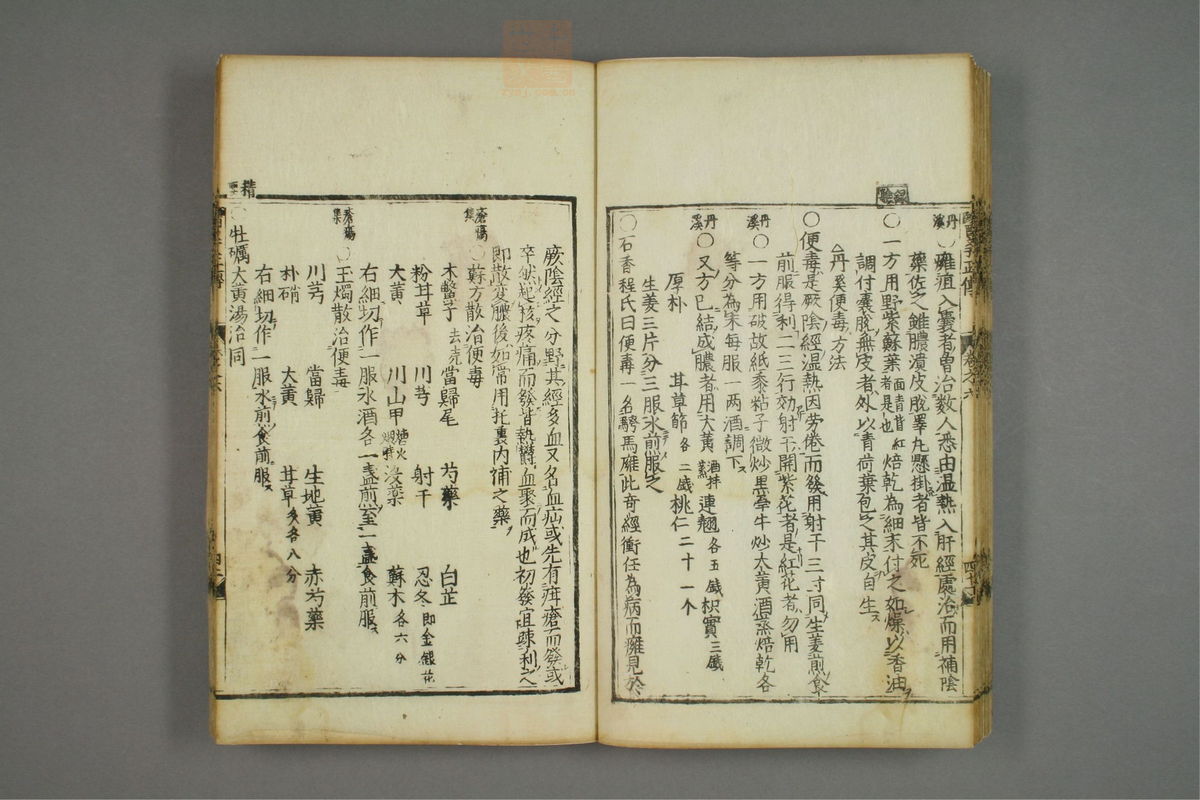 丹溪
○癰疽入囊者曽治数人悉由温熱入肝經處治而用補陰
藥佐之雖膿潰皮脫睪丸懸掛者皆不死
○一方用野紫蘇葉面青背紅者是也焙乾為細末付之如燥以香油
調付囊脫無皮者外以青荷葉包之其皮自生
△丹溪便毒方法
○便毒是厥陰經温熱因劳倦而發用射干三寸同生姜煎食
前服得利二三行効射干開紫花者是紅花者勿用
丹溪
○一方用破故紙黍粘子微炒黒牽牛炒大黄酒蒸焙乾各
等分為末每服一两酒調下
丹溪
○又方已結成膿者用大黄酒拌蒸連翹各五銭枳實三銭
厚朴 甘草節各二銭桃仁二十一个
生姜三片分三服水煎服之
○石香程氏曰便毒一名騎馬癰此奇經衝任為病而癰見於
厥陰經之分野其經多血又名血疝或先有疳瘡而發或
卒然起核疼痛而發皆熱鬱血聚而成也初發宜踈利之
即散変膿後如常用托裏内補之藥
瘡瘍集
○蘇方散治便毒
木鱉子去壳當歸尾 芍藥 白芷
粉甘草 川芎 射干 忍冬即金銀花
大黄 川山甲 没藥 蘇木各六分
右細切作一服水酒各一盞煎至一盞食前服
瘡瘍集
○王燭散治便毒
川芎 當歸 生地黄 赤芍藥
朴硝 大黄 甘草各八分
右細切作一服水煎食前服
精要
○牡礪大黄湯治同